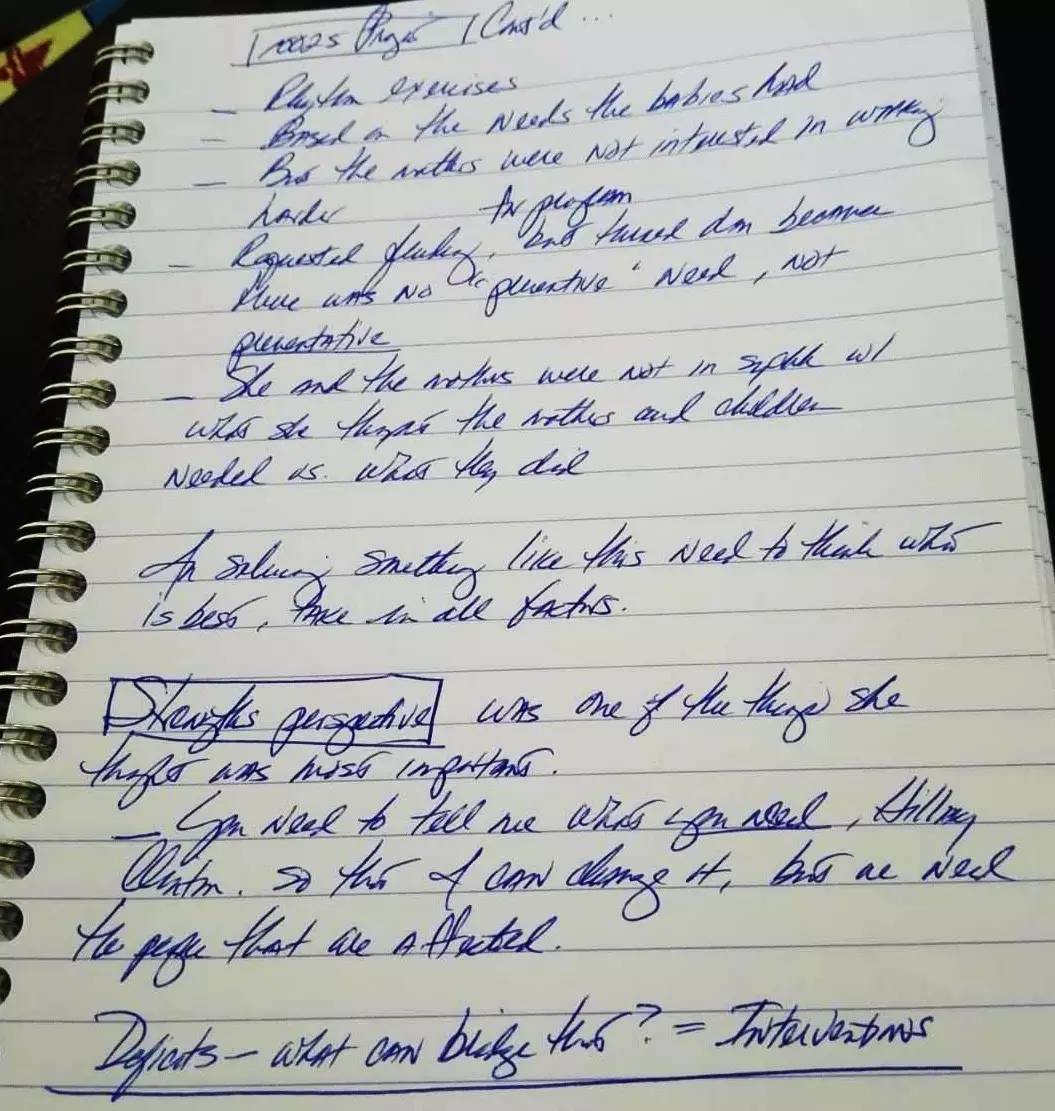 Cont'd ...
— Rhythm exercises
— Based on the needs the babies had
— But the mothers were not interested in working
harder for program
— Requested funding, but turned down because
there was no " " need, not
preventative
— She and the mothers were not in synch w/
what she thought the mothers and children
needed vs. what they did
In solving something like this need to think what
is best, take in all factors.
Strengths perspective was one of the things she
thought was most important.
— You need to tell me what you need, Hillary
Clinton. So that I can change it, but we need
the people that are affected.
Deficits – what can bridge this? = Interventions